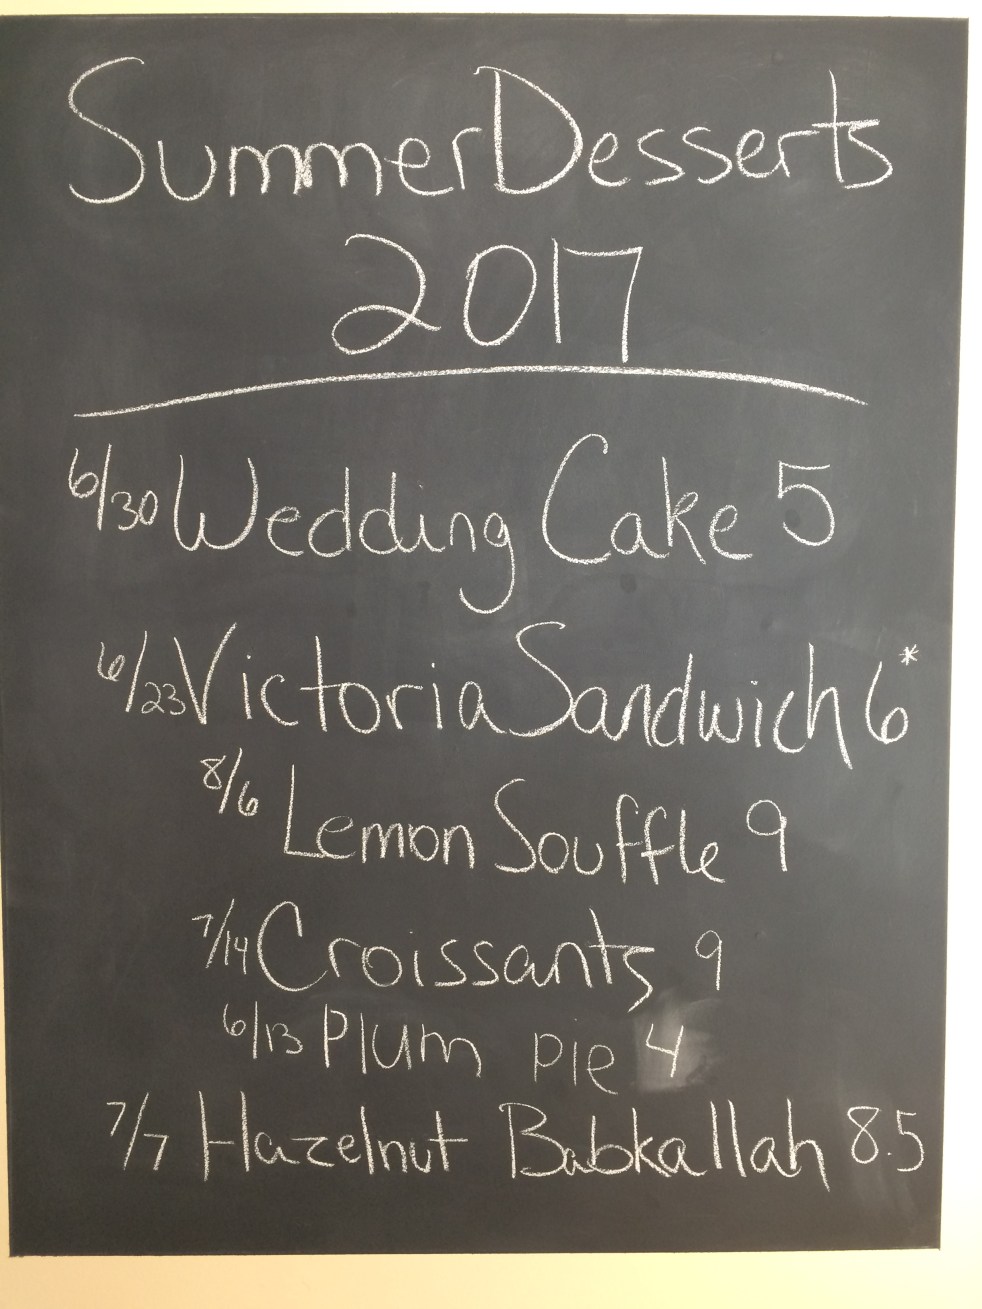 Summer Desserts
2017
6/30 Wedding Cake 5
6/23 Victoria Sandwich 6*
8/6 Lemon Souffle 9
7/14 Croissants 9
6/13 Plum pie 4
7/7 Hazelnut Babkallah 8.5